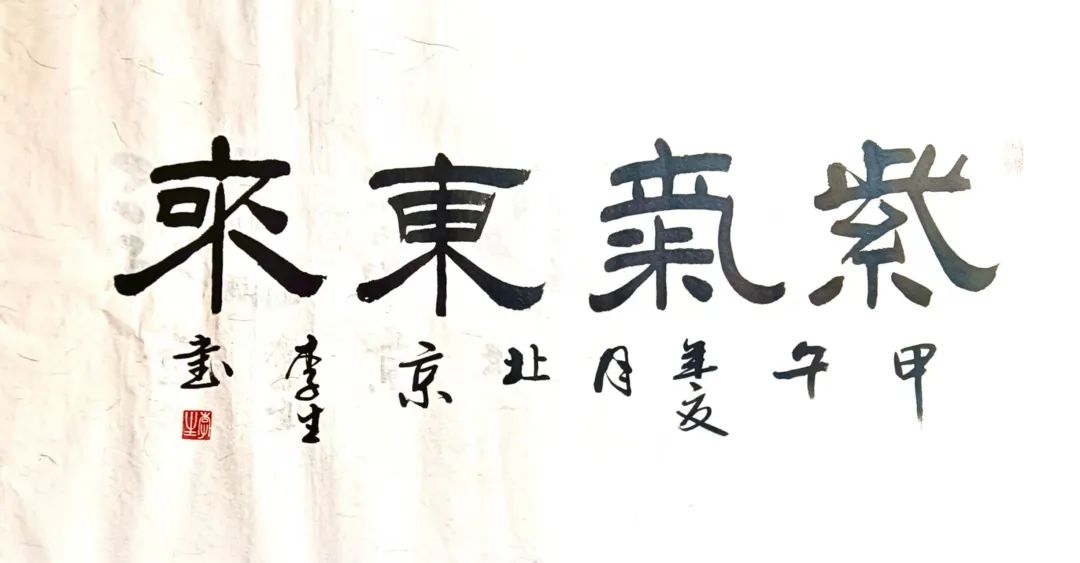 紫氣東來
甲午年夏月北京李生書
李生